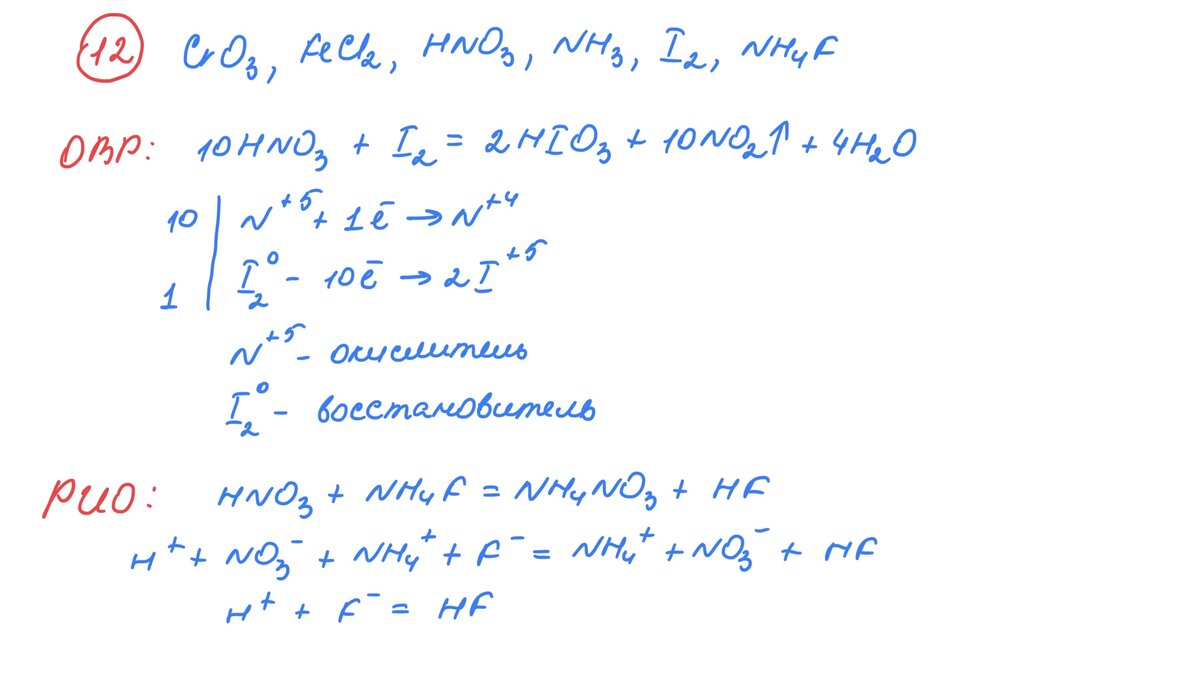 12 CrO₃, FeCl₂, HNO₃, NH₃, I₂, NH₄F
ОВР: 10HNO₃ + I₂ = 2HIO₃ + 10NO₂↑ + 4H₂O
10 | N⁺⁵ + 1ē → N⁺⁴
1 | I₂⁰ - 10ē → 2I⁺⁵
N⁺⁵ - окислитель
I₂⁰ - восстановитель
РИО: HNO₃ + NH₄F = NH₄NO₃ + HF
H⁺ + NO₃⁻ + NH₄⁺ + F⁻ = NH₄⁺ + NO₃⁻ + HF
H⁺ + F⁻ = HF